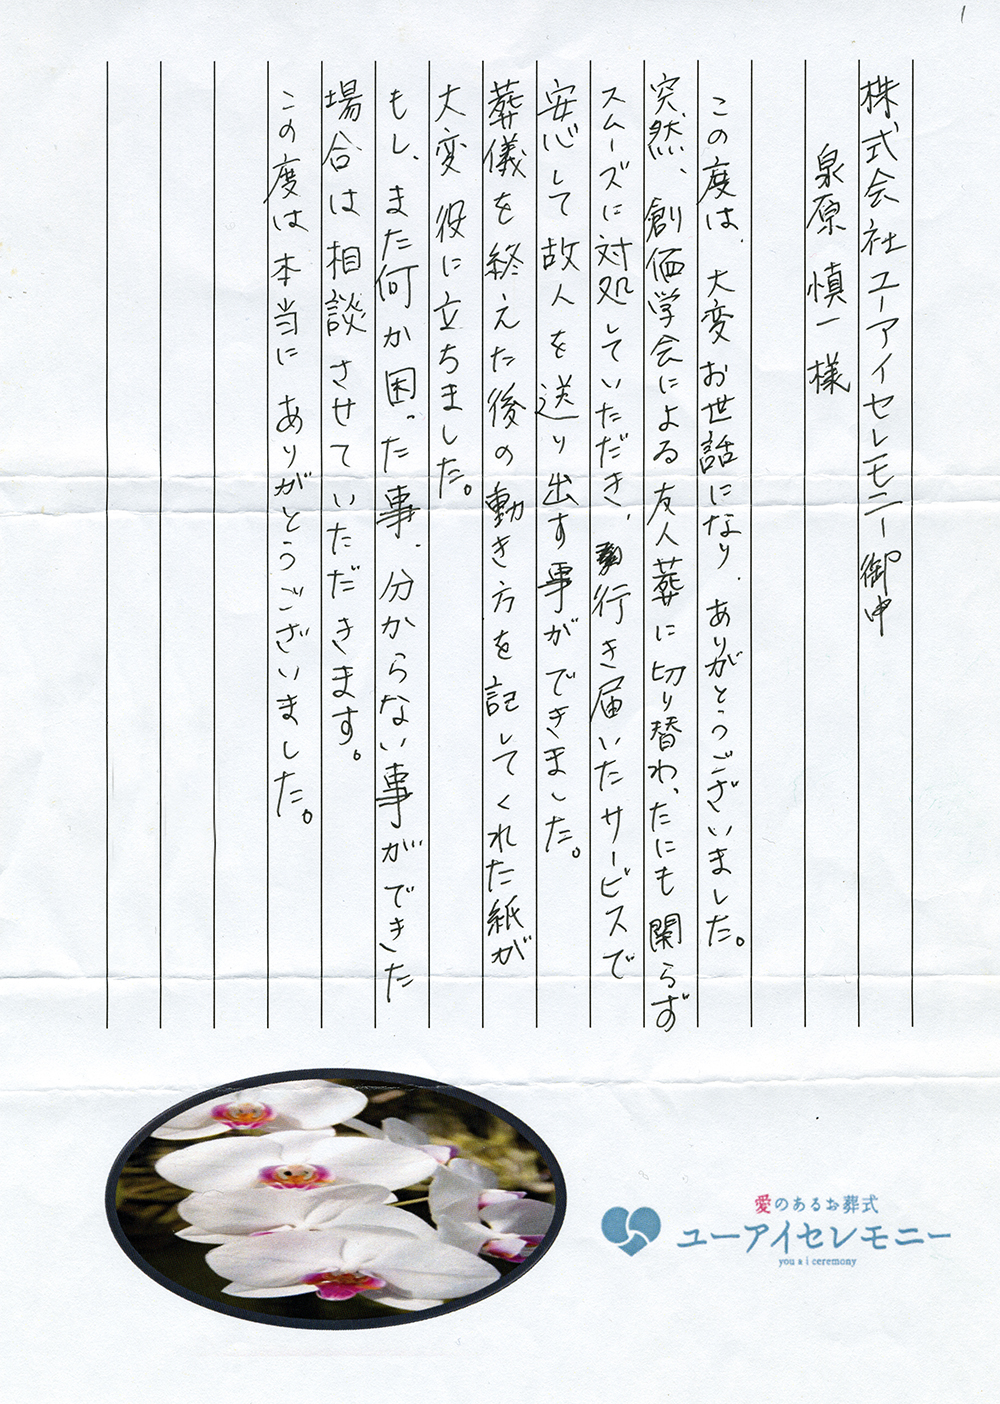 1
株式会社ユーアイセレモニー御中
泉原 慎一 様
この度は、大変お世話になり、ありがとうございました。
突然、創価学会による友人葬に切り替わったにも関らず
スムーズに対処していただき、行き届いたサービスで
安心して故人を送り出す事ができました。
葬儀を終えた後の動き方を記してくれた紙が
大変役に立ちました。
もし、また何か困った事、分からない事ができた
場合は相談させていただきます。
この度は本当にありがとうございました。
愛のあるお葬式
ユーアイセレモニー
you & i ceremony